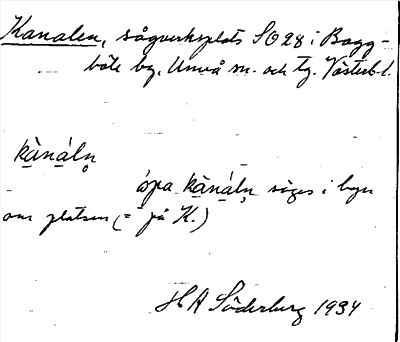 Kanalen, sågverksplats SO 28 i Bagg-
böle by, Umeå sn. och tg. Västerb. l.
kànáln̥
ópa kànáln̥ säges i byn
om platsen (= på K.)
H A Söderberg 1934